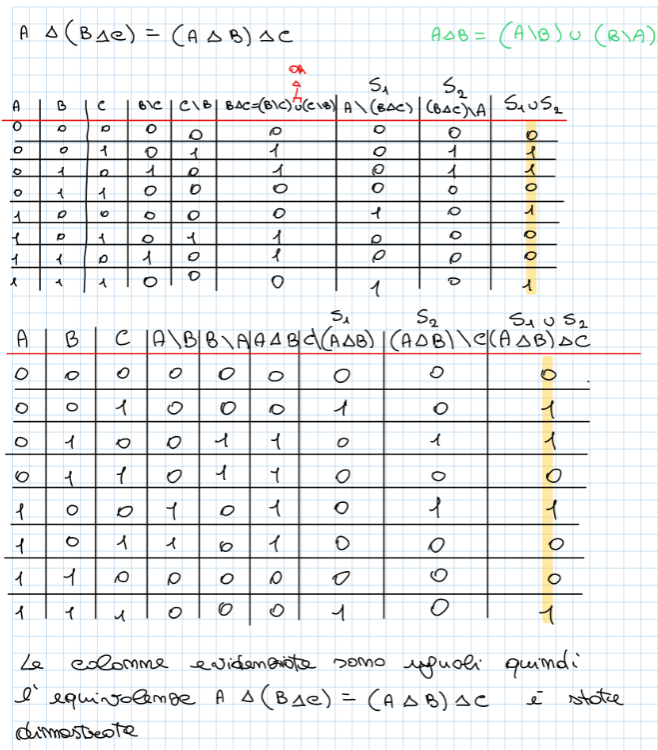 A Δ (BΔC) = (A Δ B) ΔC
AΔB = (A\B) ∪ (B\A)
OR
S₁ S₂
A B C B\C C\B BΔC=(B\C)∪(C\B) A\(BΔC) (BΔC)\A S₁∪S₂
0 0 0 0 0 0 0 0 0
0 0 1 0 1 1 0 1 1
0 1 0 1 0 1 0 1 1
0 1 1 0 0 0 0 0 0
1 0 0 0 0 0 1 0 1
1 0 1 0 1 1 0 0 0
1 1 0 1 0 1 0 0 0
1 1 1 0 0 0 1 0 1
S₁ S₂ S₁ ∪ S₂
A B C A\B B\A AΔB C\(AΔB) (AΔB)\C (AΔB)ΔC
0 0 0 0 0 0 0 0 0
0 0 1 0 0 0 1 0 1
0 1 0 0 1 1 0 1 1
0 1 1 0 1 1 0 0 0
1 0 0 1 0 1 0 1 1
1 0 1 1 0 1 0 0 0
1 1 0 0 0 0 0 0 0
1 1 1 0 0 0 1 0 1
Le colonne evidenziate sono uguali quindi
l'equivalenza A Δ (BΔC) = (A Δ B) ΔC è stata
dimostrata